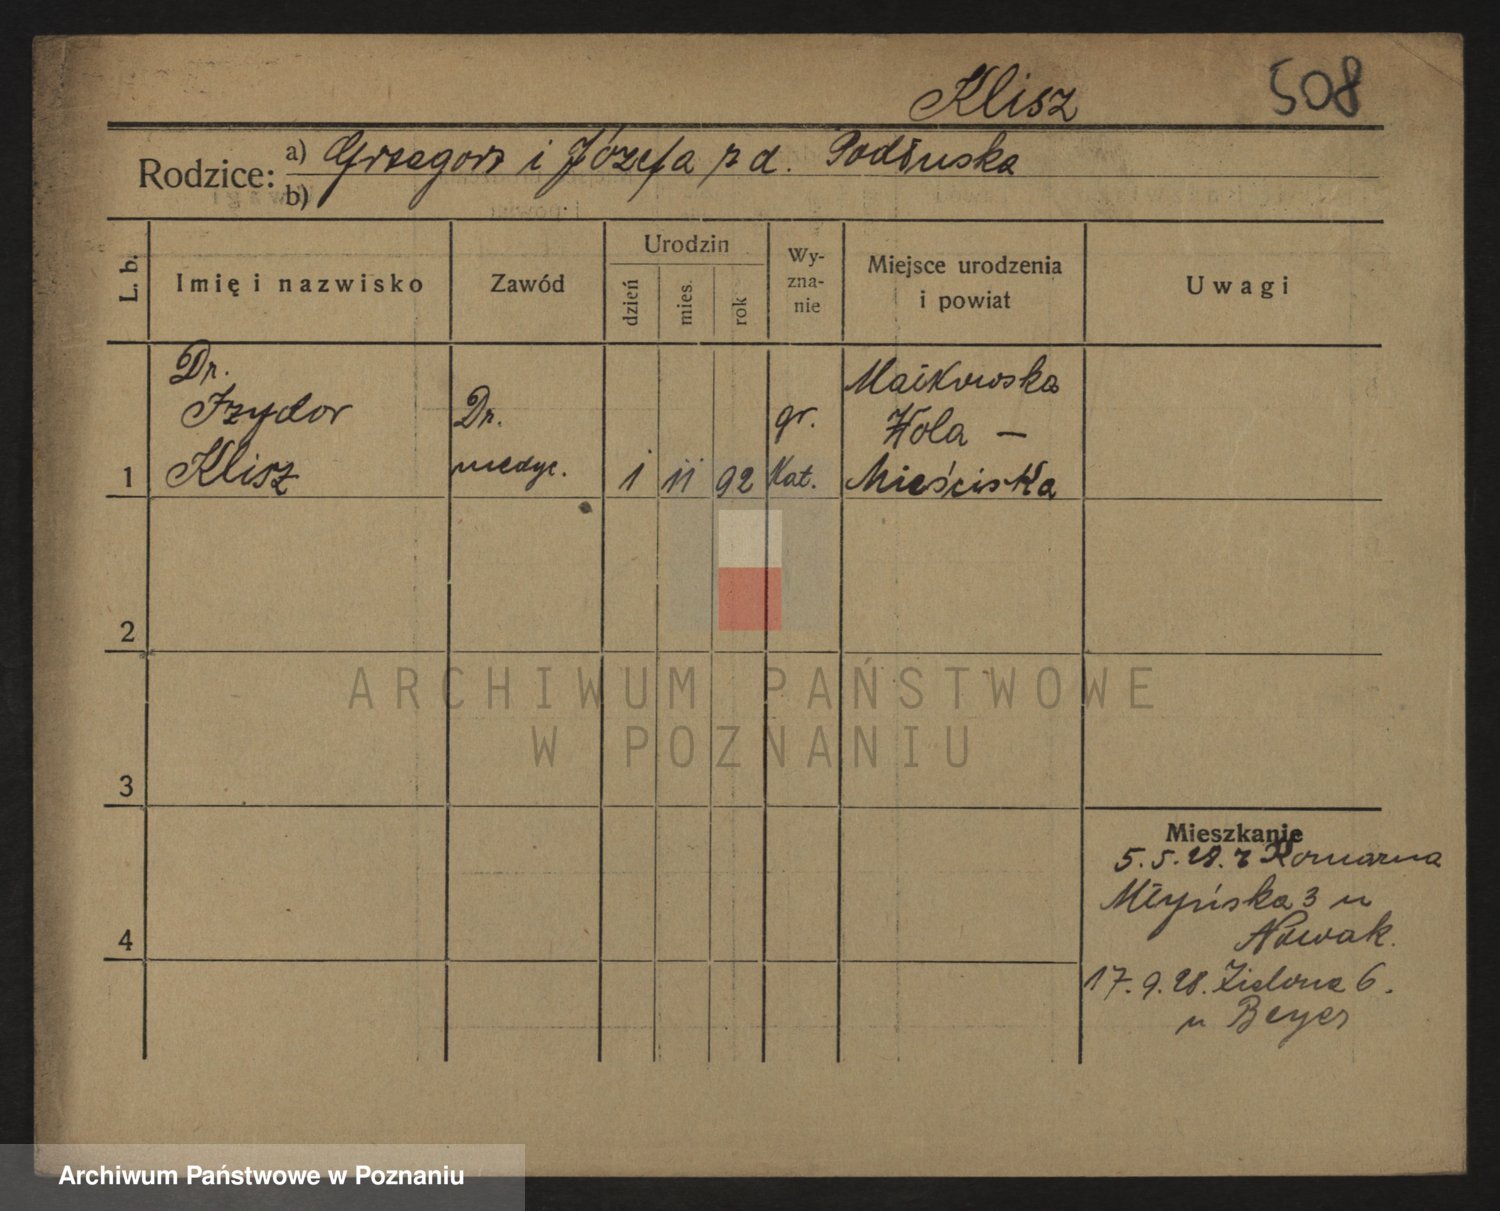 Klisz
508
Rodzice: a) Grzegorz i Józefa z d. Podłuska
b)
L. b.
Imię i nazwisko
Zawód
Urodzin
dzień
mies.
rok
Wy-
zna-
nie
Miejsce urodzenia
i powiat
Uwagi
1
Dr.
Izydor
Klisz
Dr.
medyc.
1
11
92
gr.
Kat.
Maikowska
Wola –
Mieściska
2
3
4
Mieszkanie
5.5.28. z Komarna
Młyńska 3 u
Nowak.
17.9.28. Zielona 6.
u Beyer
ARCHIWUM PAŃSTWOWE
W POZNANIU
Archiwum Państwowe w Poznaniu